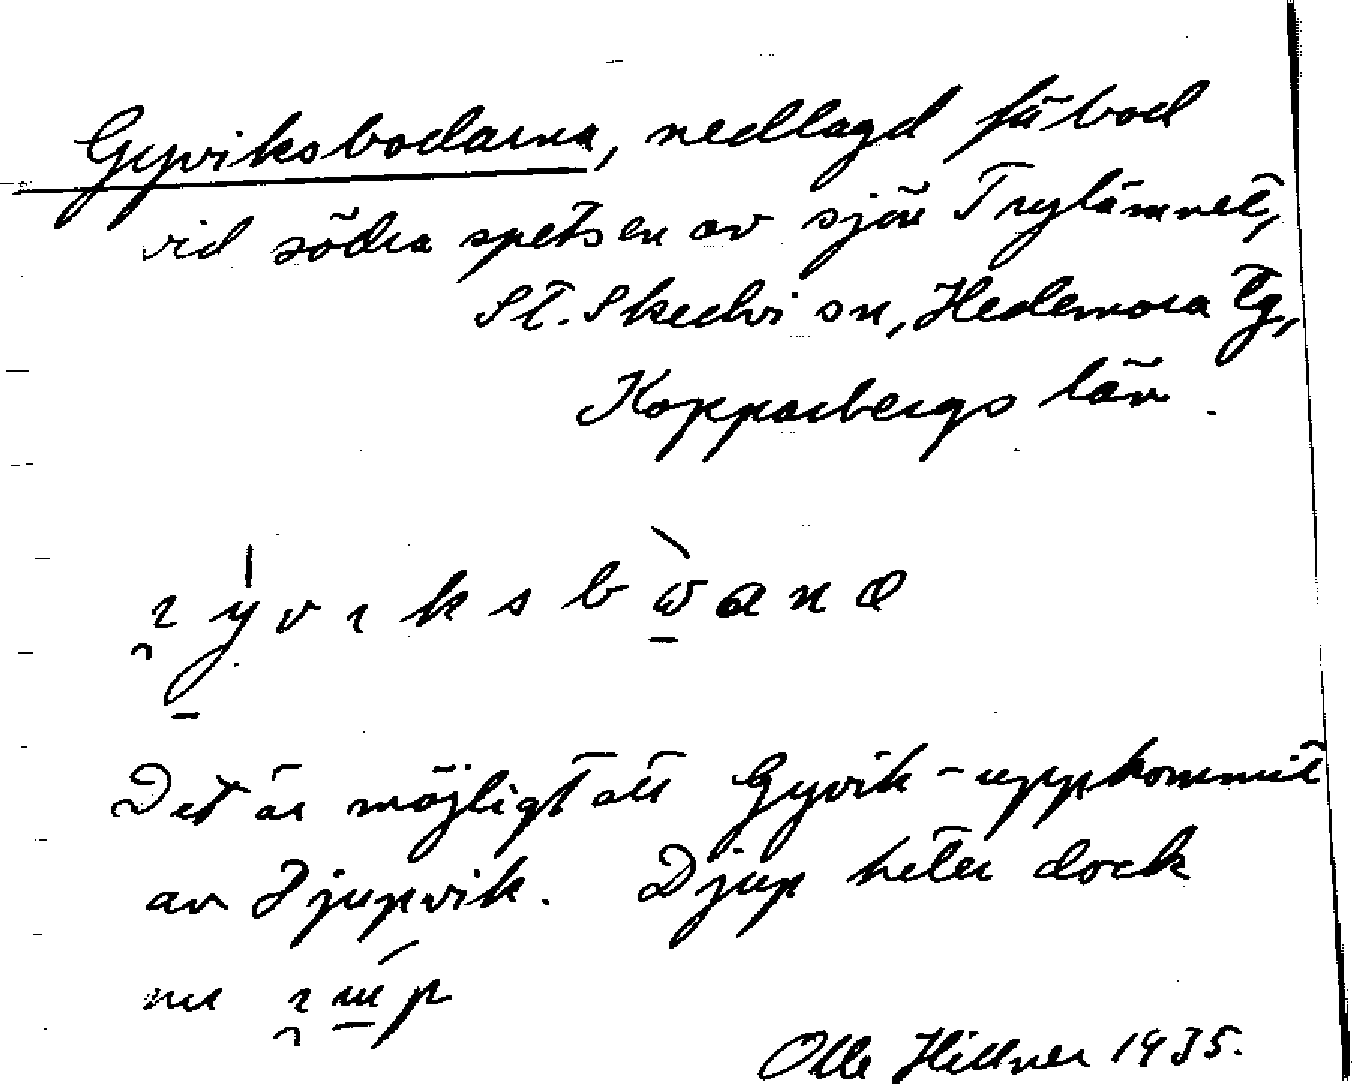 Gyviksbodarna, nedlagd fäbod
vid södra spetsen av sjön Trylämnet,
St. Skedvi sn, Hedemora tg,
Kopparbergs län.
Det är möjligt att Gyvik- uppkommit
av Djupvik. Djup heter dock
nu
Olle Hillner 1935.